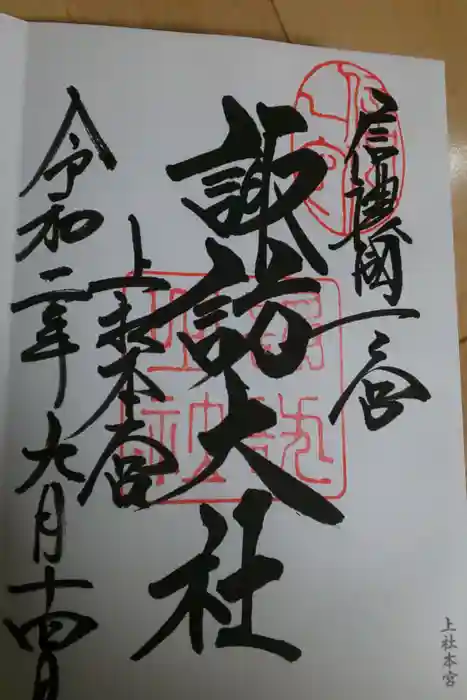 信濃國一之宮
諏訪大社
上社本宮
令和二年九月十四日
上社本宮